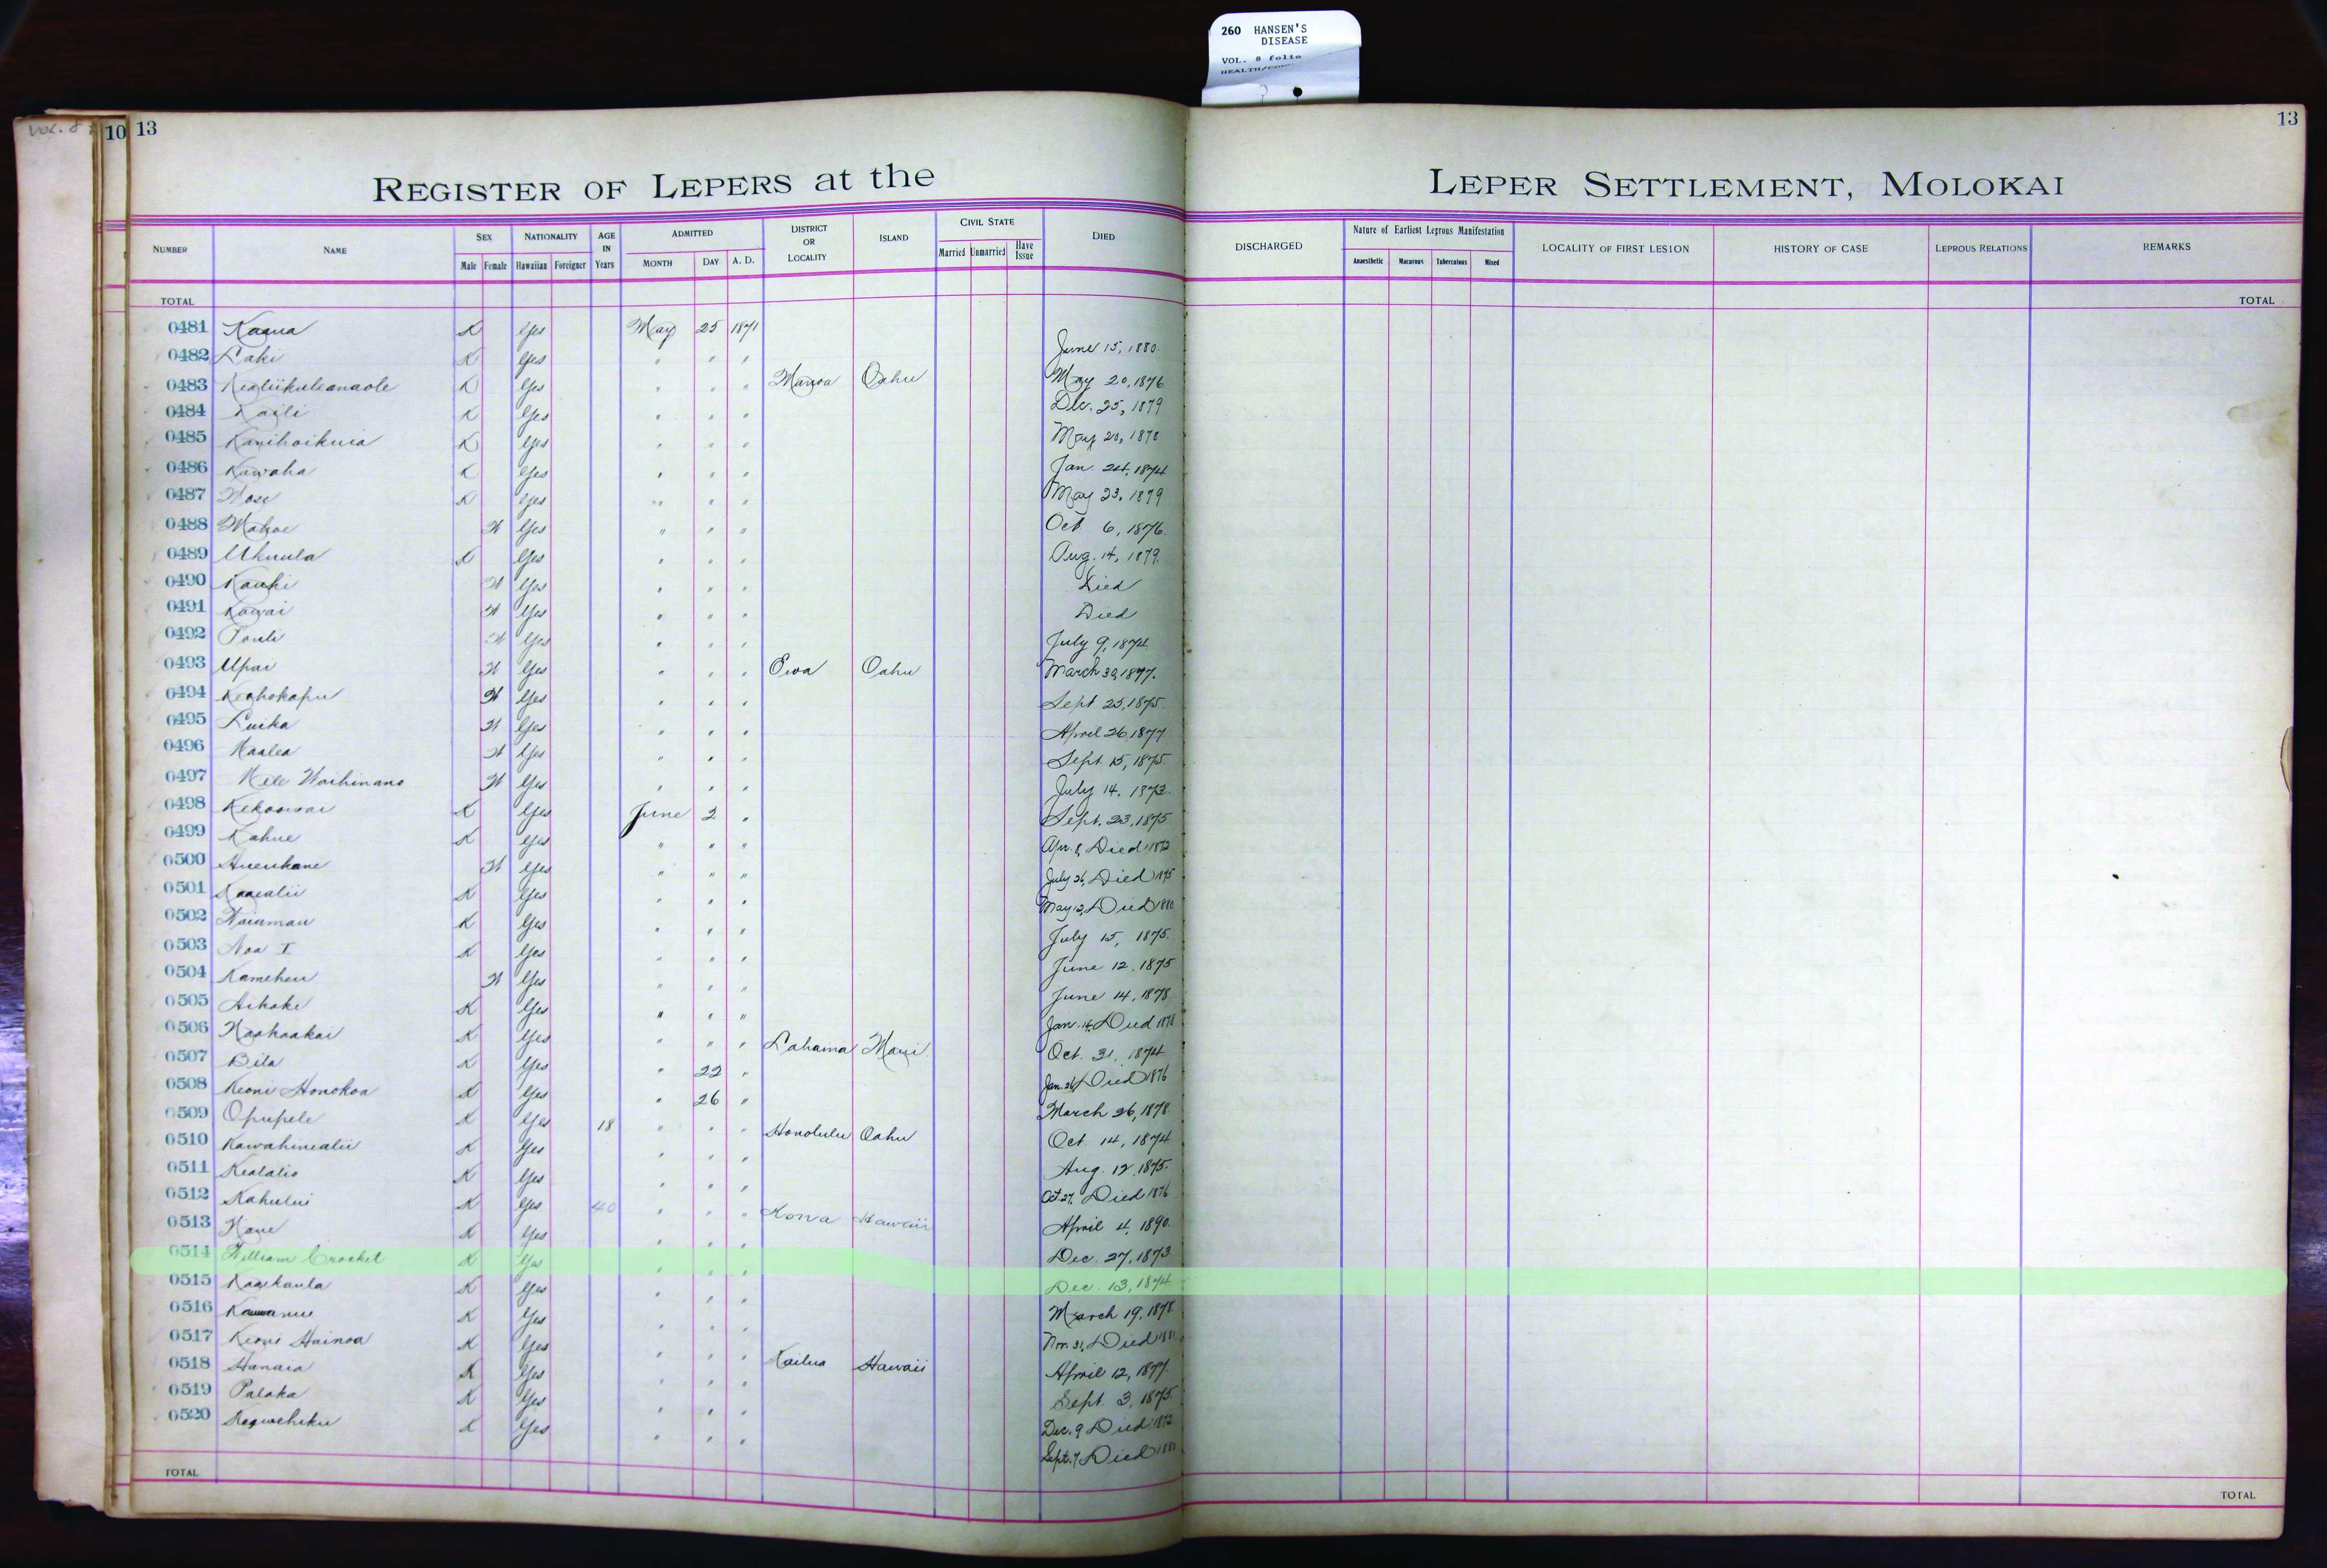 260 HANSEN'S
DISEASE
VOL. 8 folio
VOL. 8
10 13
13
REGISTER OF LEPERS at the LEPER SETTLEMENT, MOLOKAI
NUMBER NAME SEX Male Female NATIONALITY Hawaiian Foreigner AGE IN Years ADMITTED MONTH DAY A. D. DISTRICT OR LOCALITY ISLAND CIVIL STATE Married Unmarried Have Issue DIED DISCHARGED Nature of Earliest Leprous Manifestation Anaesthetic Macurous Tuberculous Mixed LOCALITY OF FIRST LESION HISTORY OF CASE LEPROUS RELATIONS REMARKS
TOTAL TOTAL
0481 Kaaua K Yes May 25 1871
0482 Laki K Yes " " " June 15, 1880.
0483 Kealiikuleanaole K Yes " " " Manoa Oahu May 20, 1876
0484 Kaili K Yes " " " Dec. 25, 1879
0485 Kanihoikuia K Yes " " " May 20, 1878
0486 Kawaha K Yes " " " Jan. 24, 1874
0487 K Yes " " " May 23, 1879
0488 Mahoe W Yes " " " Oct 6, 1876.
0489 Ukuula K Yes " " " Aug. 14, 1879.
0490 Kauhi W Yes " " " Died
0491 Kawai W Yes " " " Died
0492 Pouli W Yes " " " July 9, 1874
0493 Upai W Yes " " " Ewa Oahu March 30, 1877.
0494 Keohokapu W Yes " " " Sept 25, 1875.
0495 Luika W Yes " " " April 26 1877
0496 Haalea W Yes " " " Sept. 15, 1875.
0497 Mele Waihinano W Yes " " " July 14, 1873.
0498 Kekoowai K Yes June 2 " Sept. 23, 1875
0499 Kahue K Yes " " " Apr. 8, Died 1872
0500 Hueukane W Yes " " " July 26, Died 1875
0501 K Yes " " " May 12, Died 1880
0502 Naiamau K Yes " " " July 15, 1875.
0503 Noa I K Yes " " " June 12, 1875
0504 Kameheu W Yes " " " June 14, 1878
0505 Aikake K Yes " " " Jan. 14, Died 1878
0506 Naahaakai K Yes " " " Lahaina Maui Oct. 31, 1874
0507 Bila K Yes " 22 " Jan. 26, Died 1876
0508 Keoni Honokoa K Yes " 26 " March 26, 1878
0509 Opupele K Yes 18 " " " Honolulu Oahu Oct 14, 1874
0510 Kawahinealii K Yes " " " Aug. 12, 1875.
0511 Kealalio K Yes " " " Oct. 27, Died 1876
0512 Kahului K Yes 40 " " " Kona Hawaii April 4, 1890.
0513 K Yes " " " Dec. 27, 1873
0514 William Crocket K Yes " " " Dec. 13, 1874
0515 Kaaikaula K Yes " " " March 19, 1878
0516 K Yes " " " Nov. 31, Died 1881
0517 Keoni Hainoa K Yes " " " Kailua Hawaii April 12, 1877.
0518 Hanaia K Yes " " " Sept. 3, 1875.
0519 Palaka K Yes " " " Dec. 9 Died 1872
0520 K Yes " " " Sept. 7 Died 1880
TOTAL TOTAL